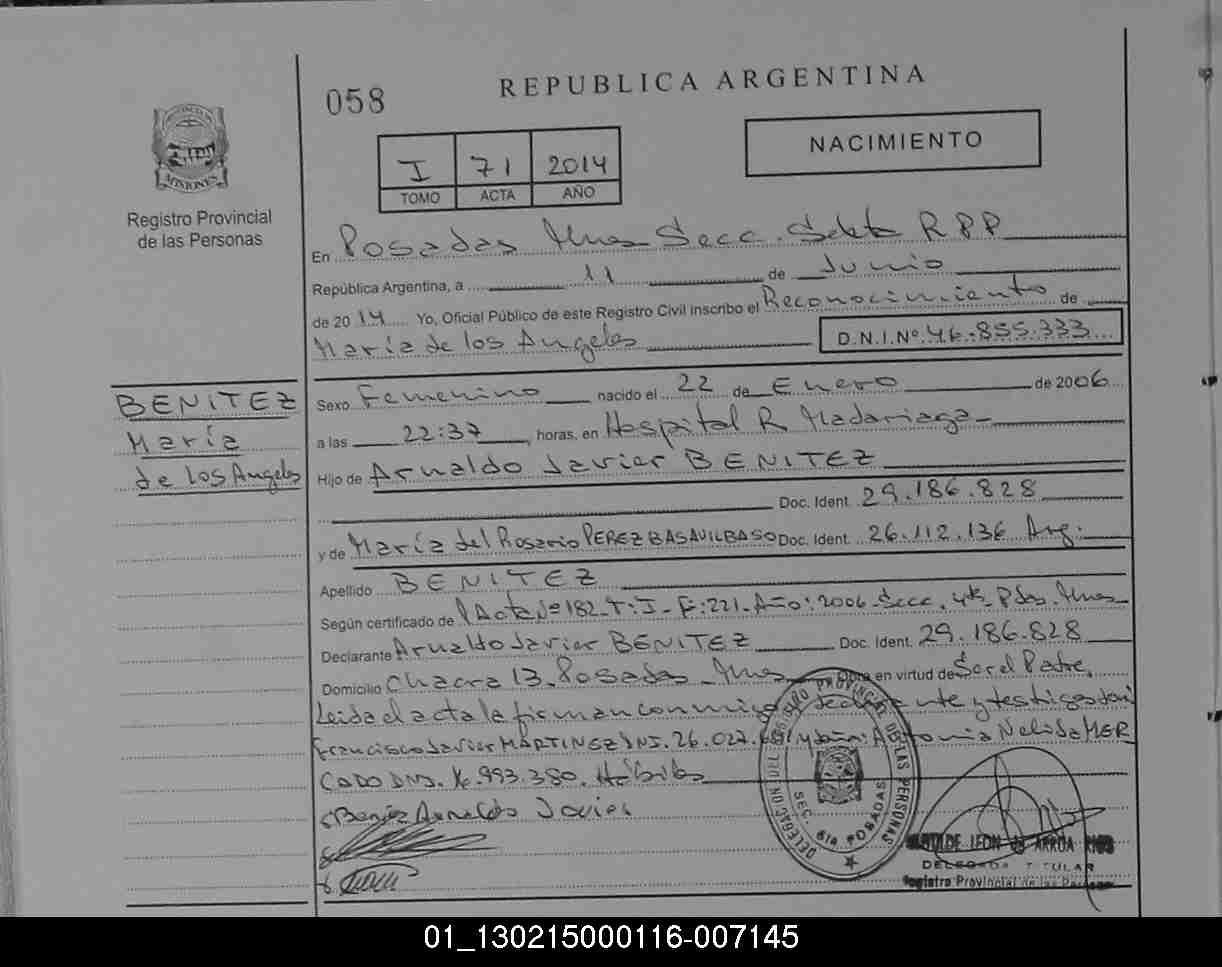 058
REPUBLICA ARGENTINA
NACIMIENTO
I 71 2014
TOMO ACTA AÑO
MISIONES
Registro Provincial
de las Personas
En Posadas Mnes Secc. Sexta RPP
República Argentina, a 11 de Junio
de 2014 Yo, Oficial Público de este Registro Civil inscribo el Reconocimiento de
María de los Angeles D.N.I.Nº 46.855.333
BENITEZ
María
de los Angeles
Sexo Femenino nacido el 22 de Enero de 2006
a las 22:37 horas, en Hospital R Madariaga
Hijo de Arnaldo Javier BENITEZ
Doc. Ident. 29.186.828
y de María del Rosario PEREZ BASAVILBASO Doc. Ident. 26.112.136 Arg.
Apellido BENITEZ
Según certificado de Acta Nº 182-T:I-F:221-Año:2006-Secc. 4ta Pdas. Mnes
Declarante Arnaldo Javier BENITEZ Doc. Ident. 29.186.828
Domicilio Chacra 13-Posadas-Mnes Obra en virtud de Ser el Padre,
Leída el acta la firman conmigo declarante y testigos
Francisco Javier MARTINEZ DNI. 26.027. Antonia Nelida MER
CADO DNI. 16.993.380. Hábiles
Benitez Arnaldo Javier
DELEGACION DEL REGISTRO PROVINCIAL DE LAS PERSONAS
SEC. 6ta POSADAS
LEON DE ARRUA
DELEGADA TITULAR
Registro Provincial de las Personas
01_130215000116-007145